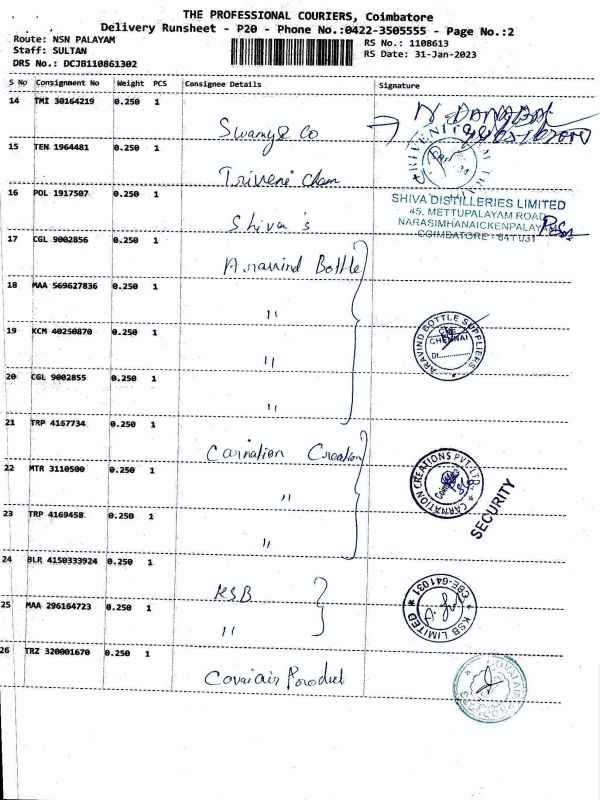 THE PROFESSIONAL COURIERS, Coimbatore
Delivery Runsheet - P20 - Phone No.:0422-3505555 - Page No.:2
Route: NSN PALAYAM
Staff: SULTAN
DRS No.: DCJB110861302
RS No.: 1108613
RS Date: 31-Jan-2023
S No Consignment No Weight PCS Consignee Details Signature
14 TMI 30164219 0.250 1 Swamy & Co
15 TEN 1964481 0.250 1 Triveni Chem
16 POL 1917507 0.250 1 Shiva's
SHIVA DISTILLERIES LIMITED
45, METTUPALAYAM ROAD
NARASIMHANAICKENPALAYAM
COIMBATORE - 641 031
17 CGL 9002856 0.250 1 Aravind Bottle
18 MAA 569627836 0.250 1 "
19 KCM 40250870 0.250 1 "
ARAVIND BOTTLE SUPPLIERS
CHENNAI
20 CGL 9002855 0.250 1 "
21 TRP 4167734 0.250 1 Carnation Creation
22 MTR 3110500 0.250 1 "
CARNATION CREATIONS PVT. LTD.
SECURITY
23 TRP 4169458 0.250 1 "
24 BLR 4150333924 0.250 1 KSB
25 MAA 296164723 0.250 1 "
KSB LIMITED
CBE-641 031
26 TRZ 320001670 0.250 1 Covaiair Product